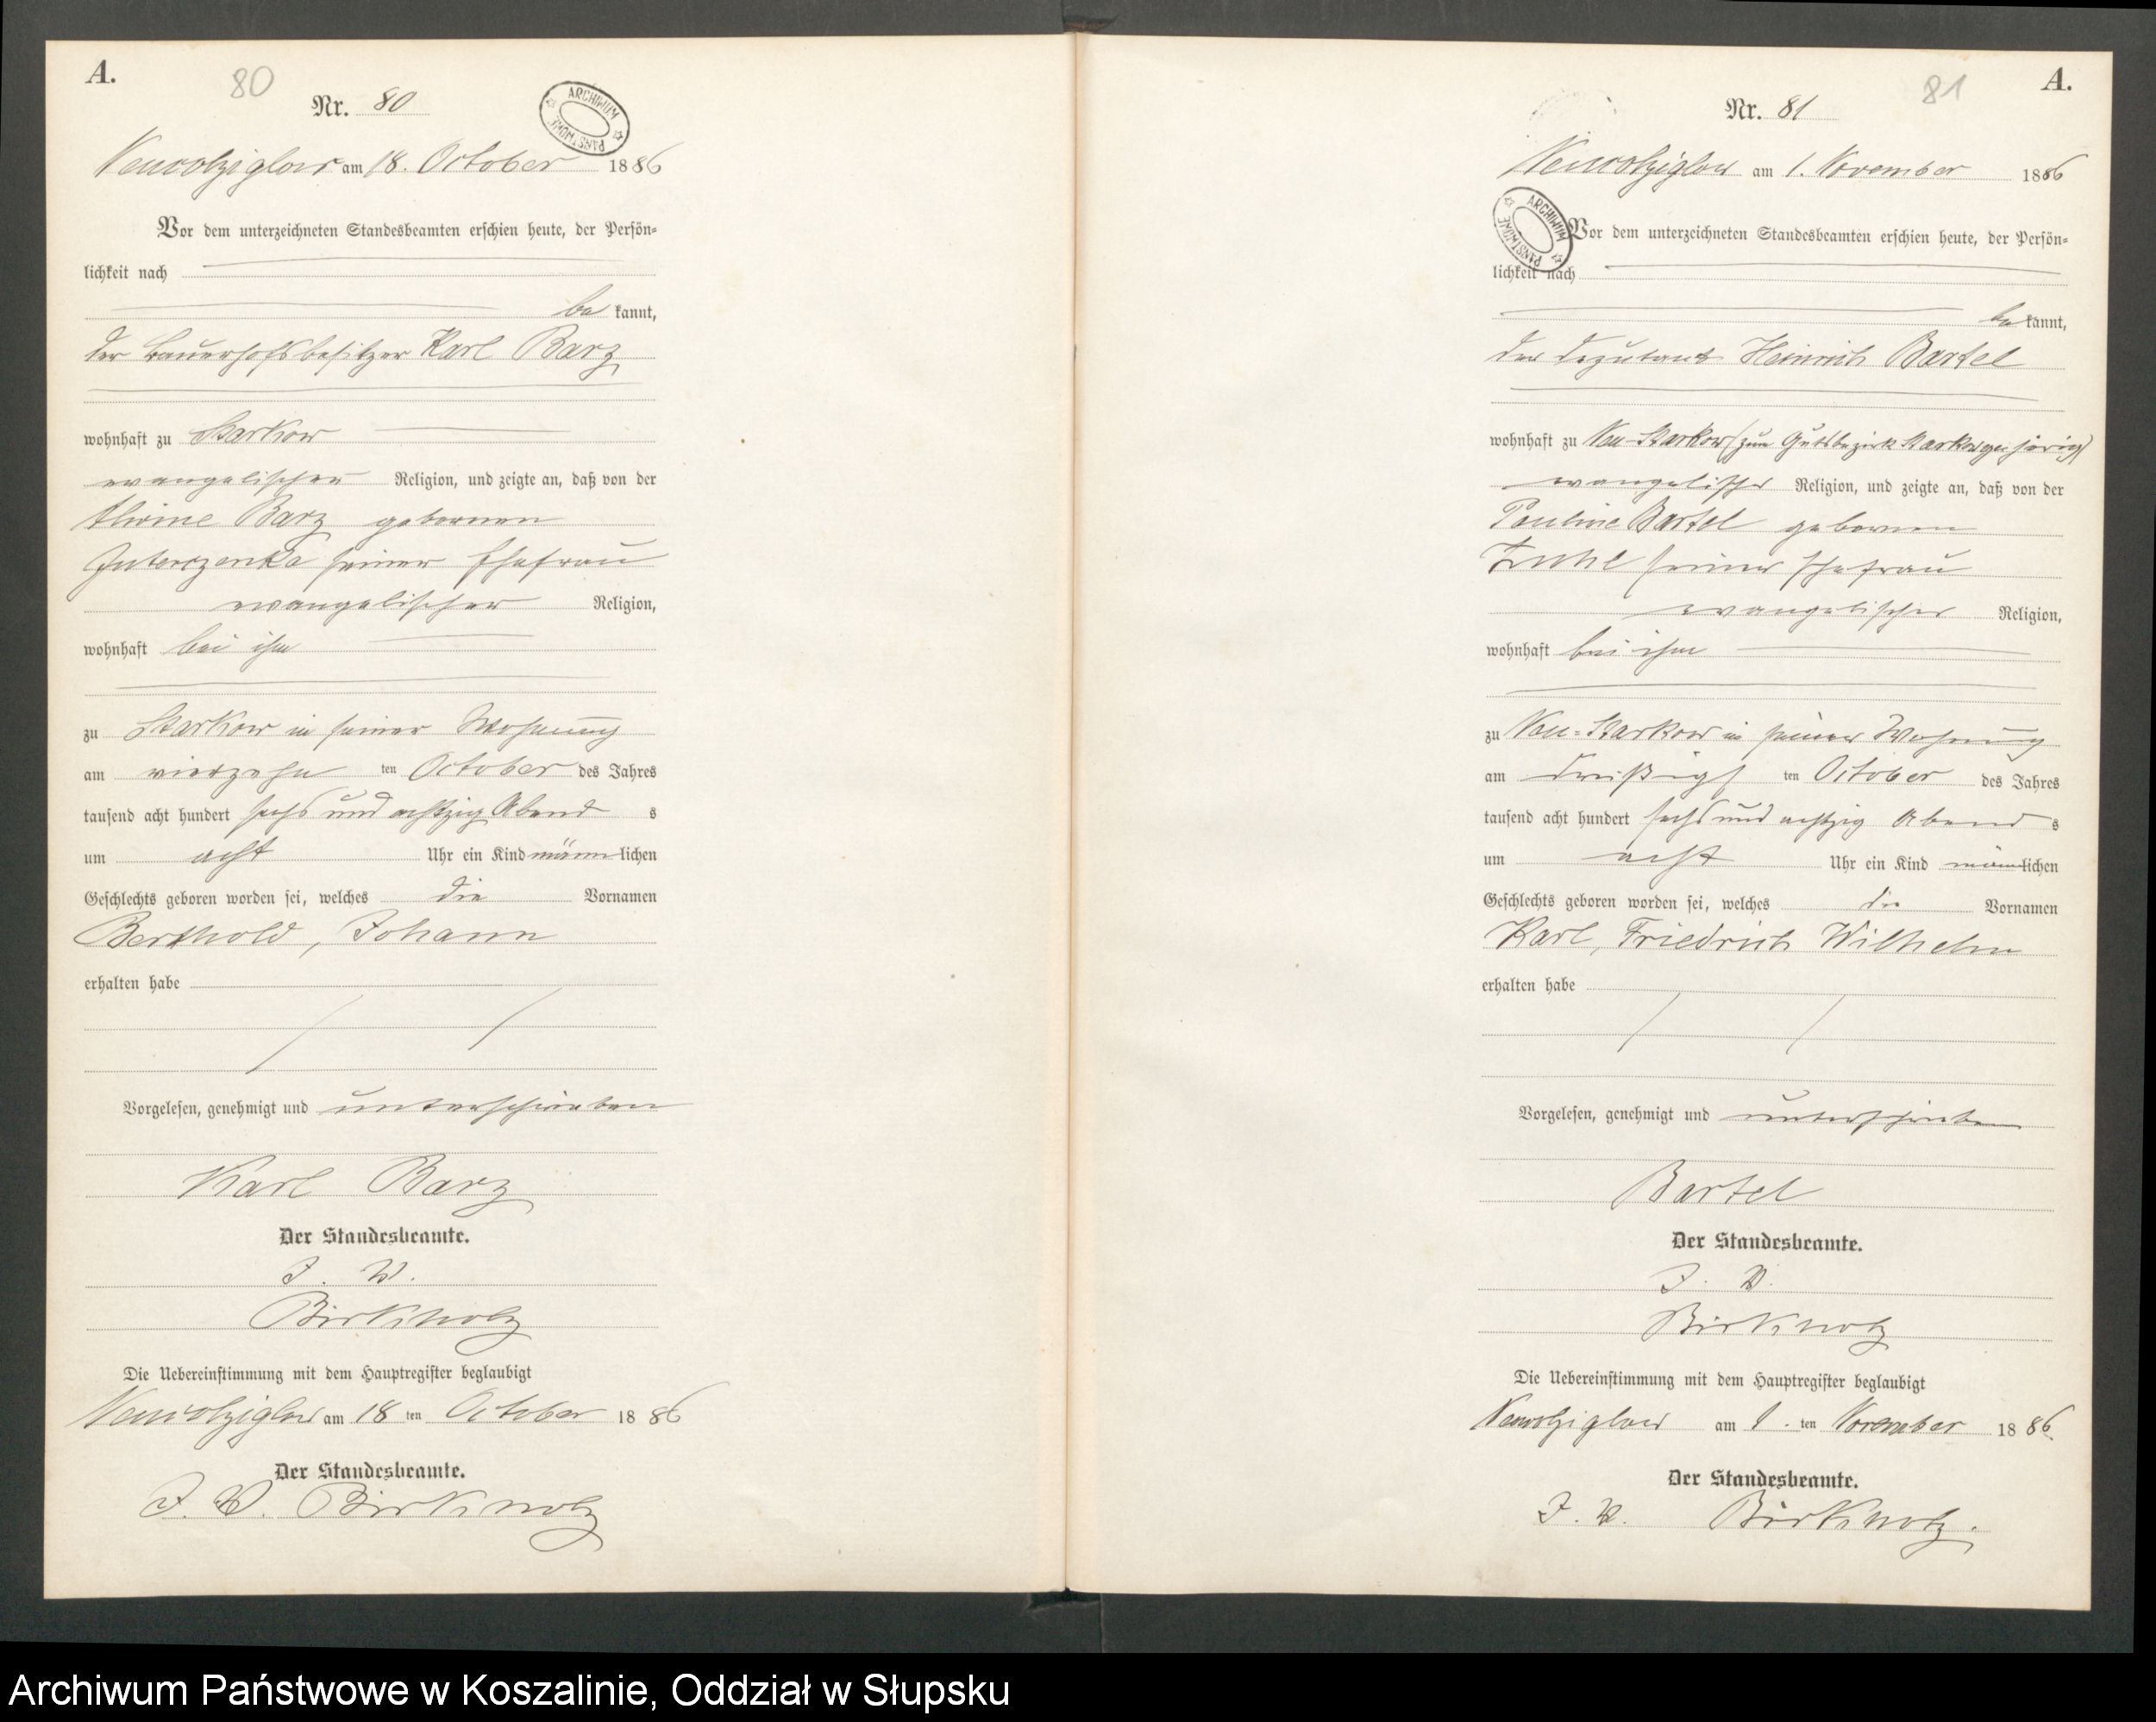 A.
80
Nr. 80
ARCHIWUM PAŃSTWOWE
am 18. October 1886
Vor dem unterzeichneten Standesbeamten erschien heute, der Persön-
lichkeit nach
be kannt,
der Bauerhofsbesitzer Karl Barz
wohnhaft zu Starkow
evangelischer Religion, und zeigte an, daß von der
Barz gebornen
seiner Ehefrau
evangelischer Religion,
wohnhaft bei ihm
zu Starkow in seiner Wohnung
am vierzehn ten October des Jahres
tausend acht hundert sechs und achtzig Abend s
um acht Uhr ein Kind männlichen
Geschlechts geboren worden sei, welches die Vornamen
Berthold, Johann
erhalten habe
Vorgelesen, genehmigt und unterschrieben
Karl Barz
Der Standesbeamte.
J. V.
Birkholz
Die Uebereinstimmung mit dem Hauptregister beglaubigt
am 18 ten October 18 86
Der Standesbeamte.
J. V. Birkholz
A.
81
Nr. 81
am 1. November 1886
ARCHIWUM PAŃSTWOWE
Vor dem unterzeichneten Standesbeamten erschien heute, der Persön-
lichkeit nach
be kannt,
der Deputant Heinrich Bartel
wohnhaft zu Neu-Starkow (zum Gutsbezirk Starkow gehörig)
evangelischer Religion, und zeigte an, daß von der
Pauline Bartel gebornen
seiner Ehefrau
evangelischer Religion,
wohnhaft bei ihm
zu Neu-Starkow in seiner Wohnung
am dreißigs ten October des Jahres
tausend acht hundert sechs und achtzig Abend s
um acht Uhr ein Kind männlichen
Geschlechts geboren worden sei, welches die Vornamen
Karl, Friedrich Wilhelm
erhalten habe
Vorgelesen, genehmigt und unterschrieben
Bartel
Der Standesbeamte.
J. V.
Birkholz
Die Uebereinstimmung mit dem Hauptregister beglaubigt
am 1. ten November 18 86.
Der Standesbeamte.
J. V. Birkholz.
Archiwum Państwowe w Koszalinie, Oddział w Słupsku